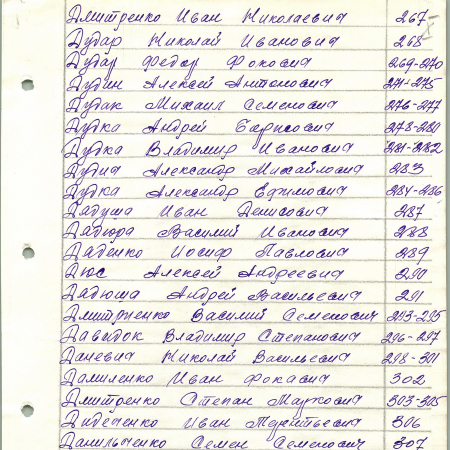 Дмитренко Иван Николаевич 267
Дудар Николай Иванович 268
Дудар Федор Фокович 269-270
Дудин Алексей Антонович 271-275
Дудак Михаил Семенович 276-277
Дудка Андрей Борисович 278-280
Дудка Владимир Иванович 281-282
Дудич Александр Михайлович 283
Дудка Александр Ефимович 284-286
Дадуша Иван Денисович 287
Дадюра Василий Иванович 288
Даденко Иосиф Павлович 289
Дюс Алексей Андреевич 290
Дадюша Андрей Васильевич 291
Дмитриенко Василий Семенович 293-295
Давыдок Владимир Степанович 296-297
Даневич Николай Васильевич 298-301
Даниленко Иван Фокович 302
Дмитренко Степан Маркович 303-305
Диденко Иван Терентьевич 306
Данильченко Семен Семенович 307